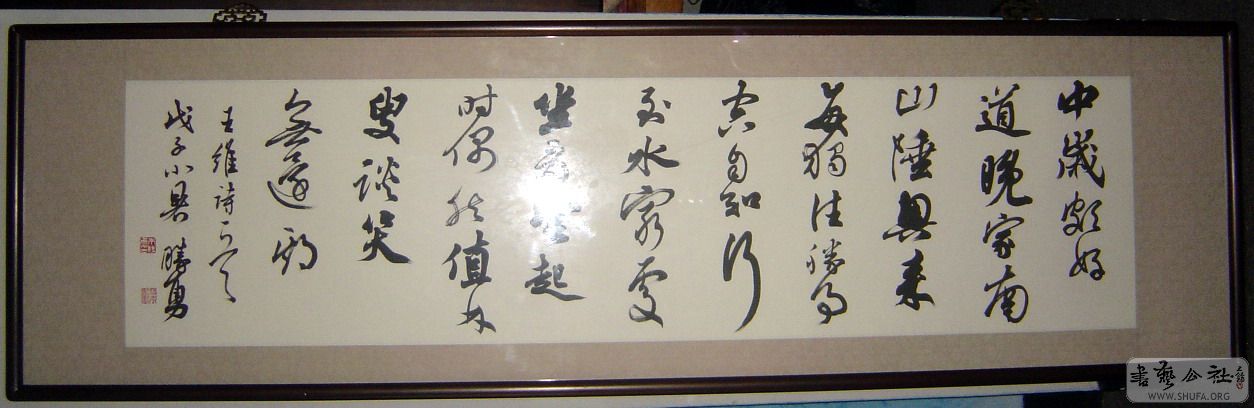 中歲頗好
道晚家南
山陲興来
每獨往勝事
空自知行
到水窮處
坐看雲起
时偶然值林
叟談笑
無還期
王維詩一首
戊子小 勝勇
書藝公社
WWW.SHUFA.ORG